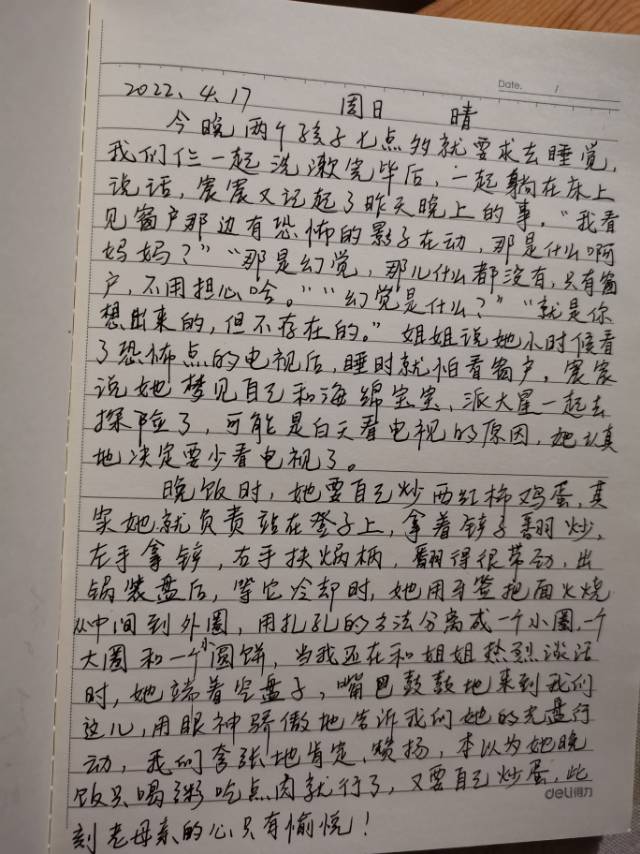 Date. /
2022.4.17 周日 晴
今晚两个孩子七点多就要求去睡觉,
我们仨一起洗漱完毕后,一起躺在床上
说话,宸宸又记起了昨天晚上的事,“我看
见窗户那边有恐怖的影子在动,那是什么啊
妈妈?”“那是幻觉,那儿什么都没有,只有窗
户,不用担心哈。”“幻觉是什么?”“就是你
想出来的,但不存在的。”姐姐说她小时候看
了恐怖点的电视后,睡时就怕看窗户,宸宸
说她梦见自己和海绵宝宝、派大星一起去
探险了,可能是白天看电视的原因,她认真
地决定要少看电视了。
晚饭时,她要自己炒西红柿鸡蛋,其
实她就负责站在凳子上,拿着铲子翻炒,
左手拿铲,右手扶锅柄,翻得很带劲,出
锅装盘后,等它冷却时,她用牙签把面火烧
从中间到外圈,用扎孔的方法分离成一个小圈,一个
大圈和一个小圆饼,当我还在和姐姐热烈谈话
时,她端着空盘子,嘴巴鼓鼓地来到我们
这儿,用眼神骄傲地告诉我们她的光盘行
动,我们夸张地肯定、赞扬,本以为她晚
饭只喝粥吃点肉就行了,又要自己炒蛋,此
刻老母亲的心只有愉悦!
deli得力